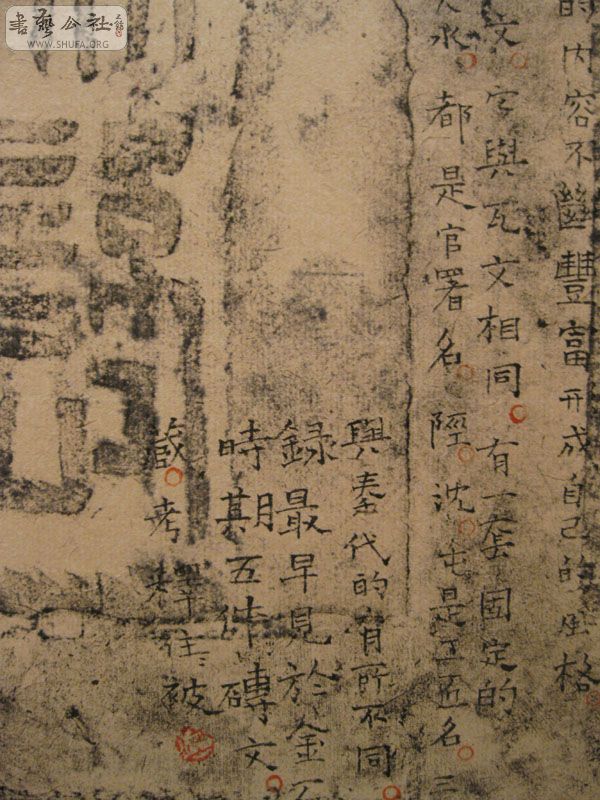 書藝公社
WWW.SHUFA.ORG
的内容不豐富形成自己的風格。
文。字與瓦文相同。有一套固定的
水。都是官署名。陘。沈。屯是工匠名。三
與秦代的有所不同。
録最早見於金石
時期五件磚文。
藏。考釋往往被